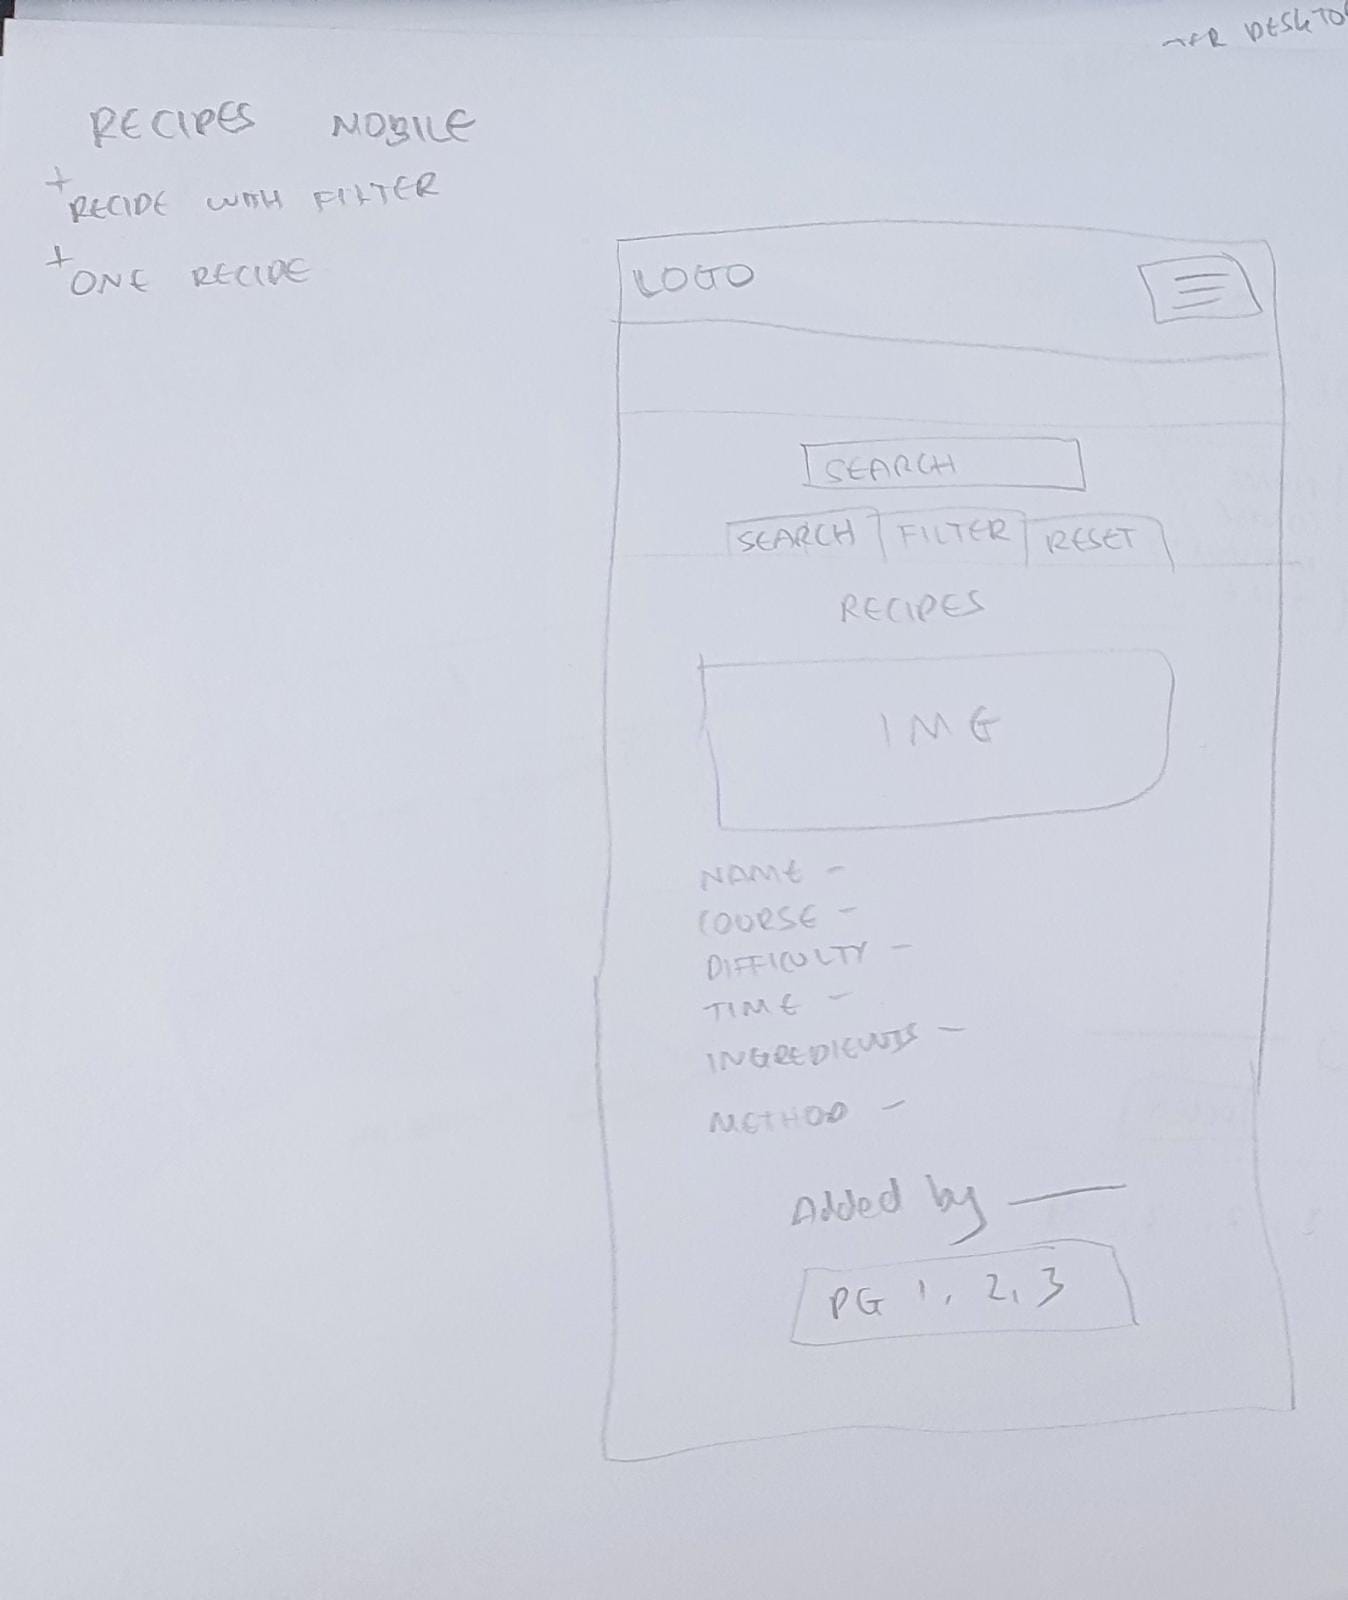 DESKTO
RECIPES MOBILE
+ RECIPE WITH FILTER
+ ONE RECIPE
LOGO
SEARCH
SEARCH FILTER RESET
RECIPES
IMG
NAME -
COURSE -
DIFFICULTY -
TIME -
INGREDIENTS -
METHOD -
Added by —
PG 1, 2, 3